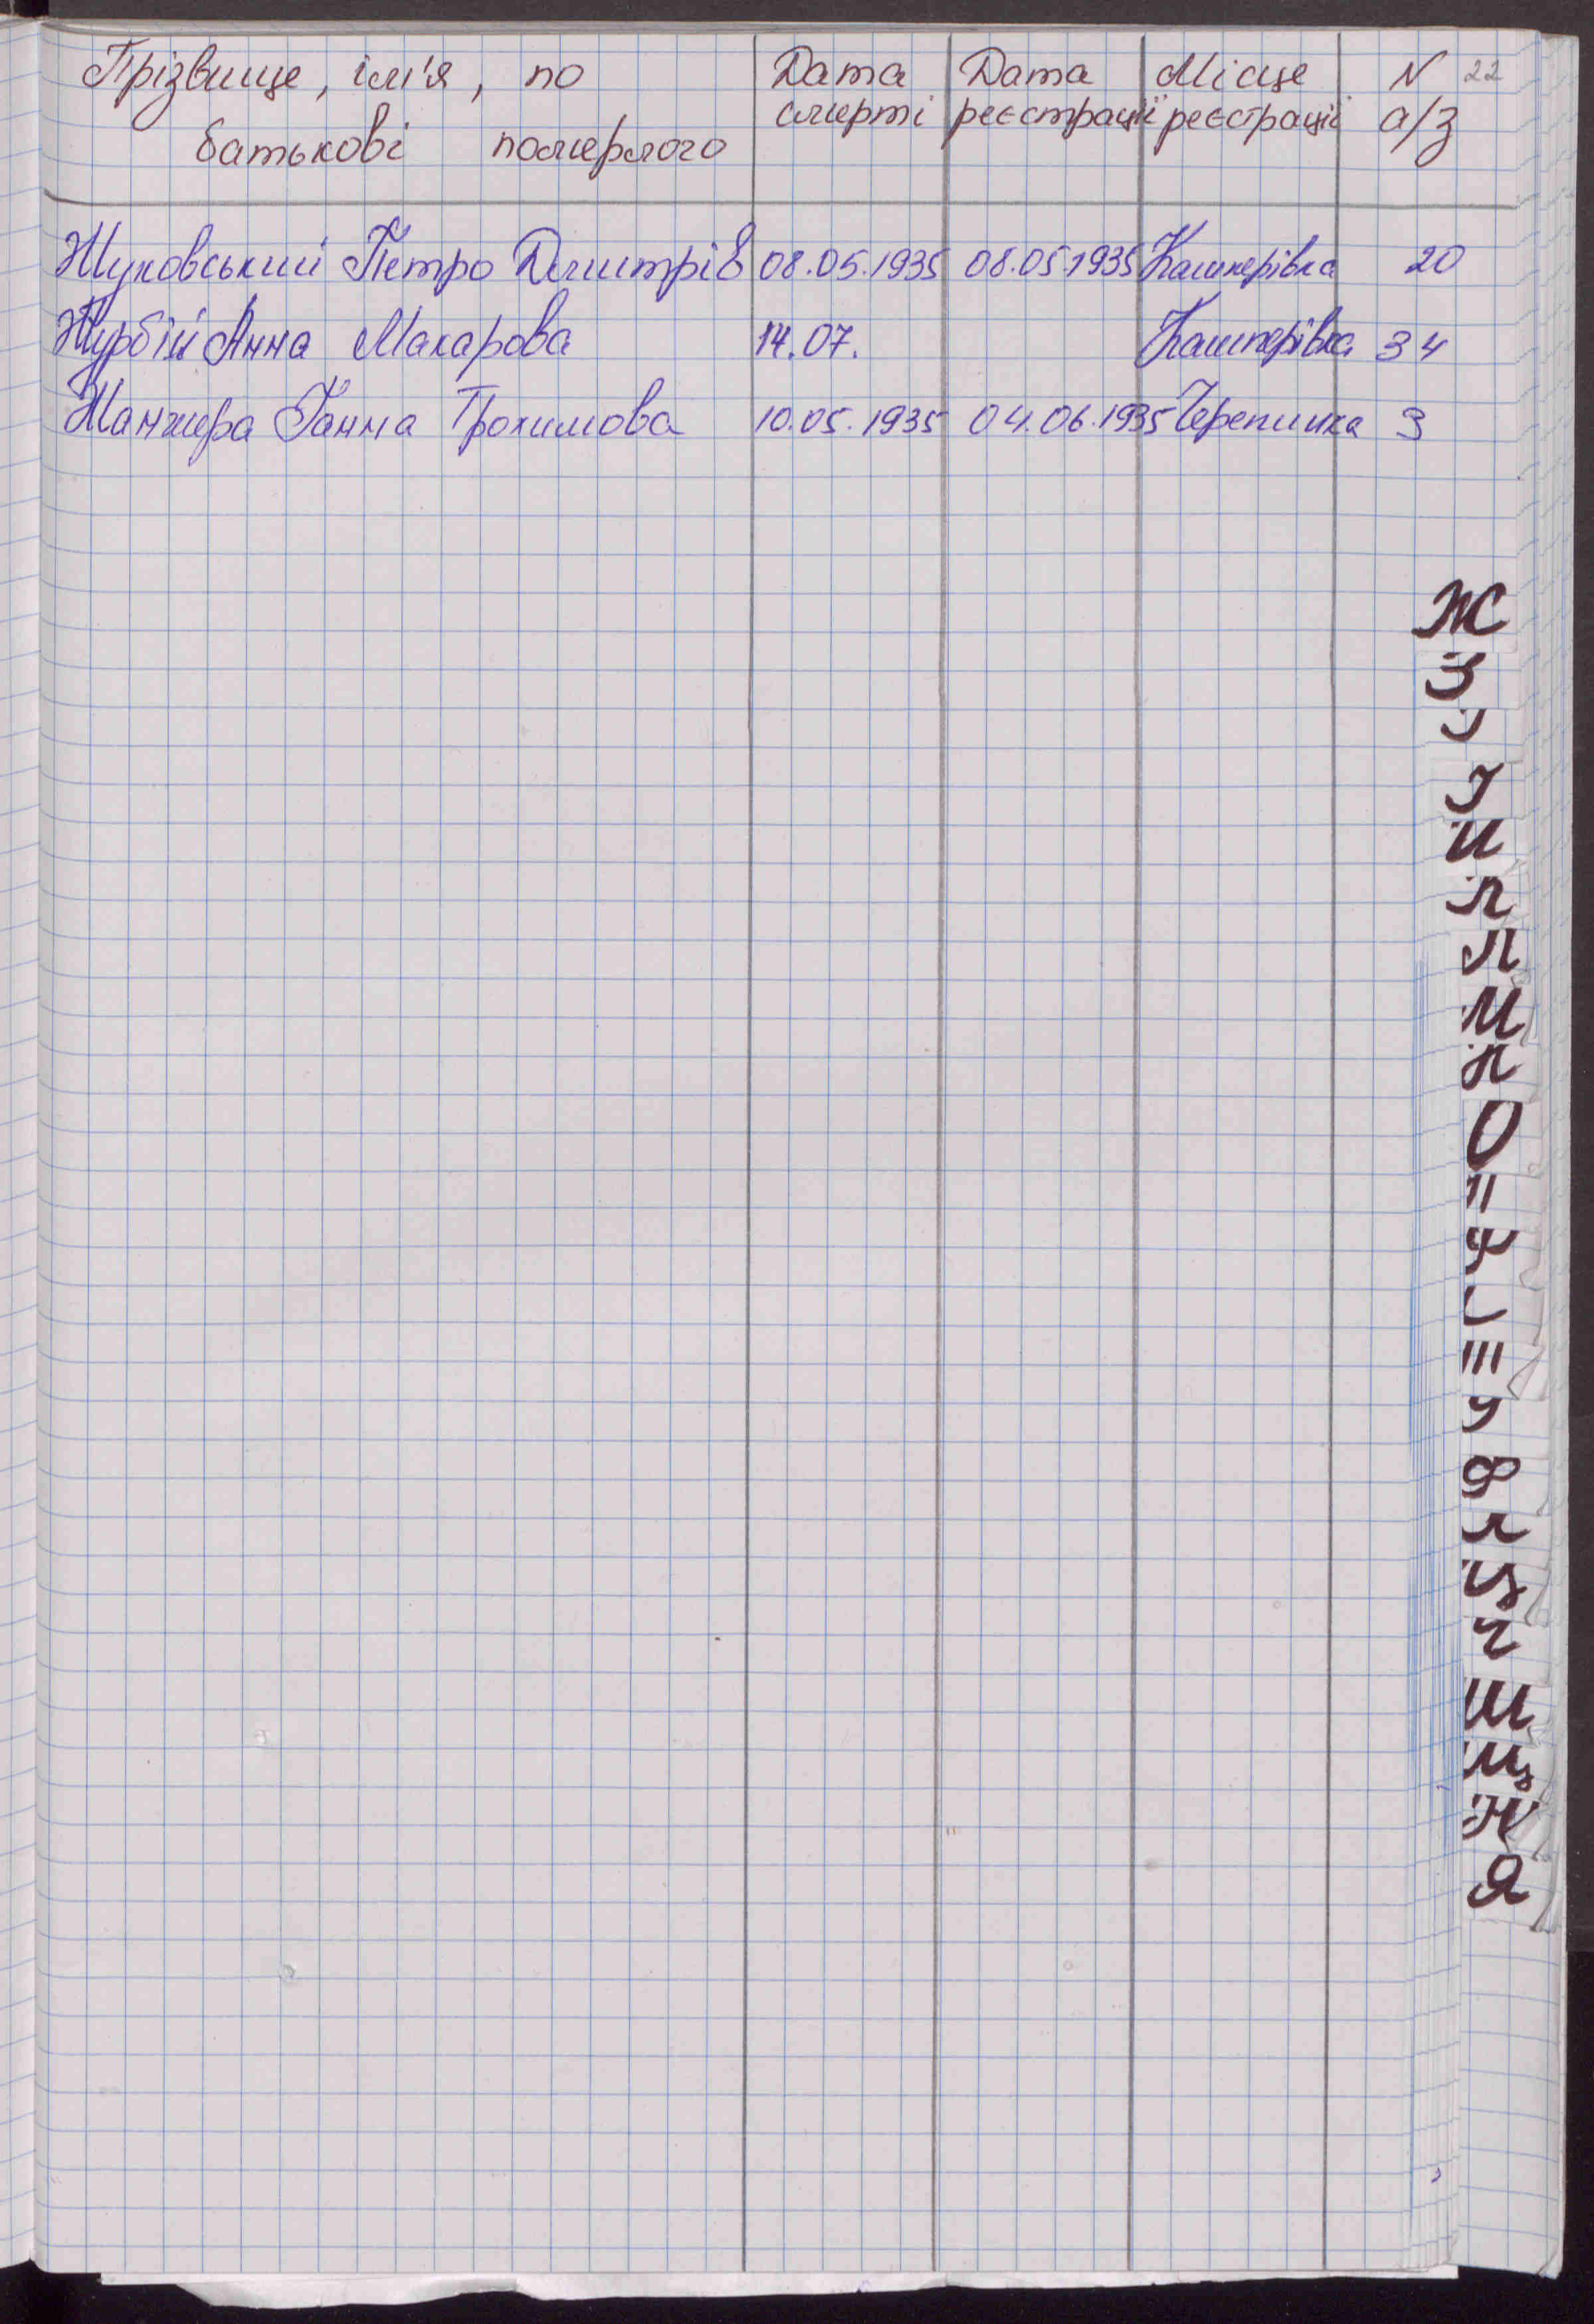 Прізвище, ім'я, по Дата Дата Місце N 22
батькові померлого смерті реєстрації реєстрації а/з
Жуковський Петро Дмитрів 08.05.1935 08.05.1935 Кашперівка 20
Журбій Анна Макарова 14.07. Кашперівка 34
Жанжира Ганна Трохимова 10.05.1935 04.06.1935 Черепинка 3
Ж
З
І
И
Л
М
О
П
У
Ф
Ц
Ч
Ш
Щ
Я